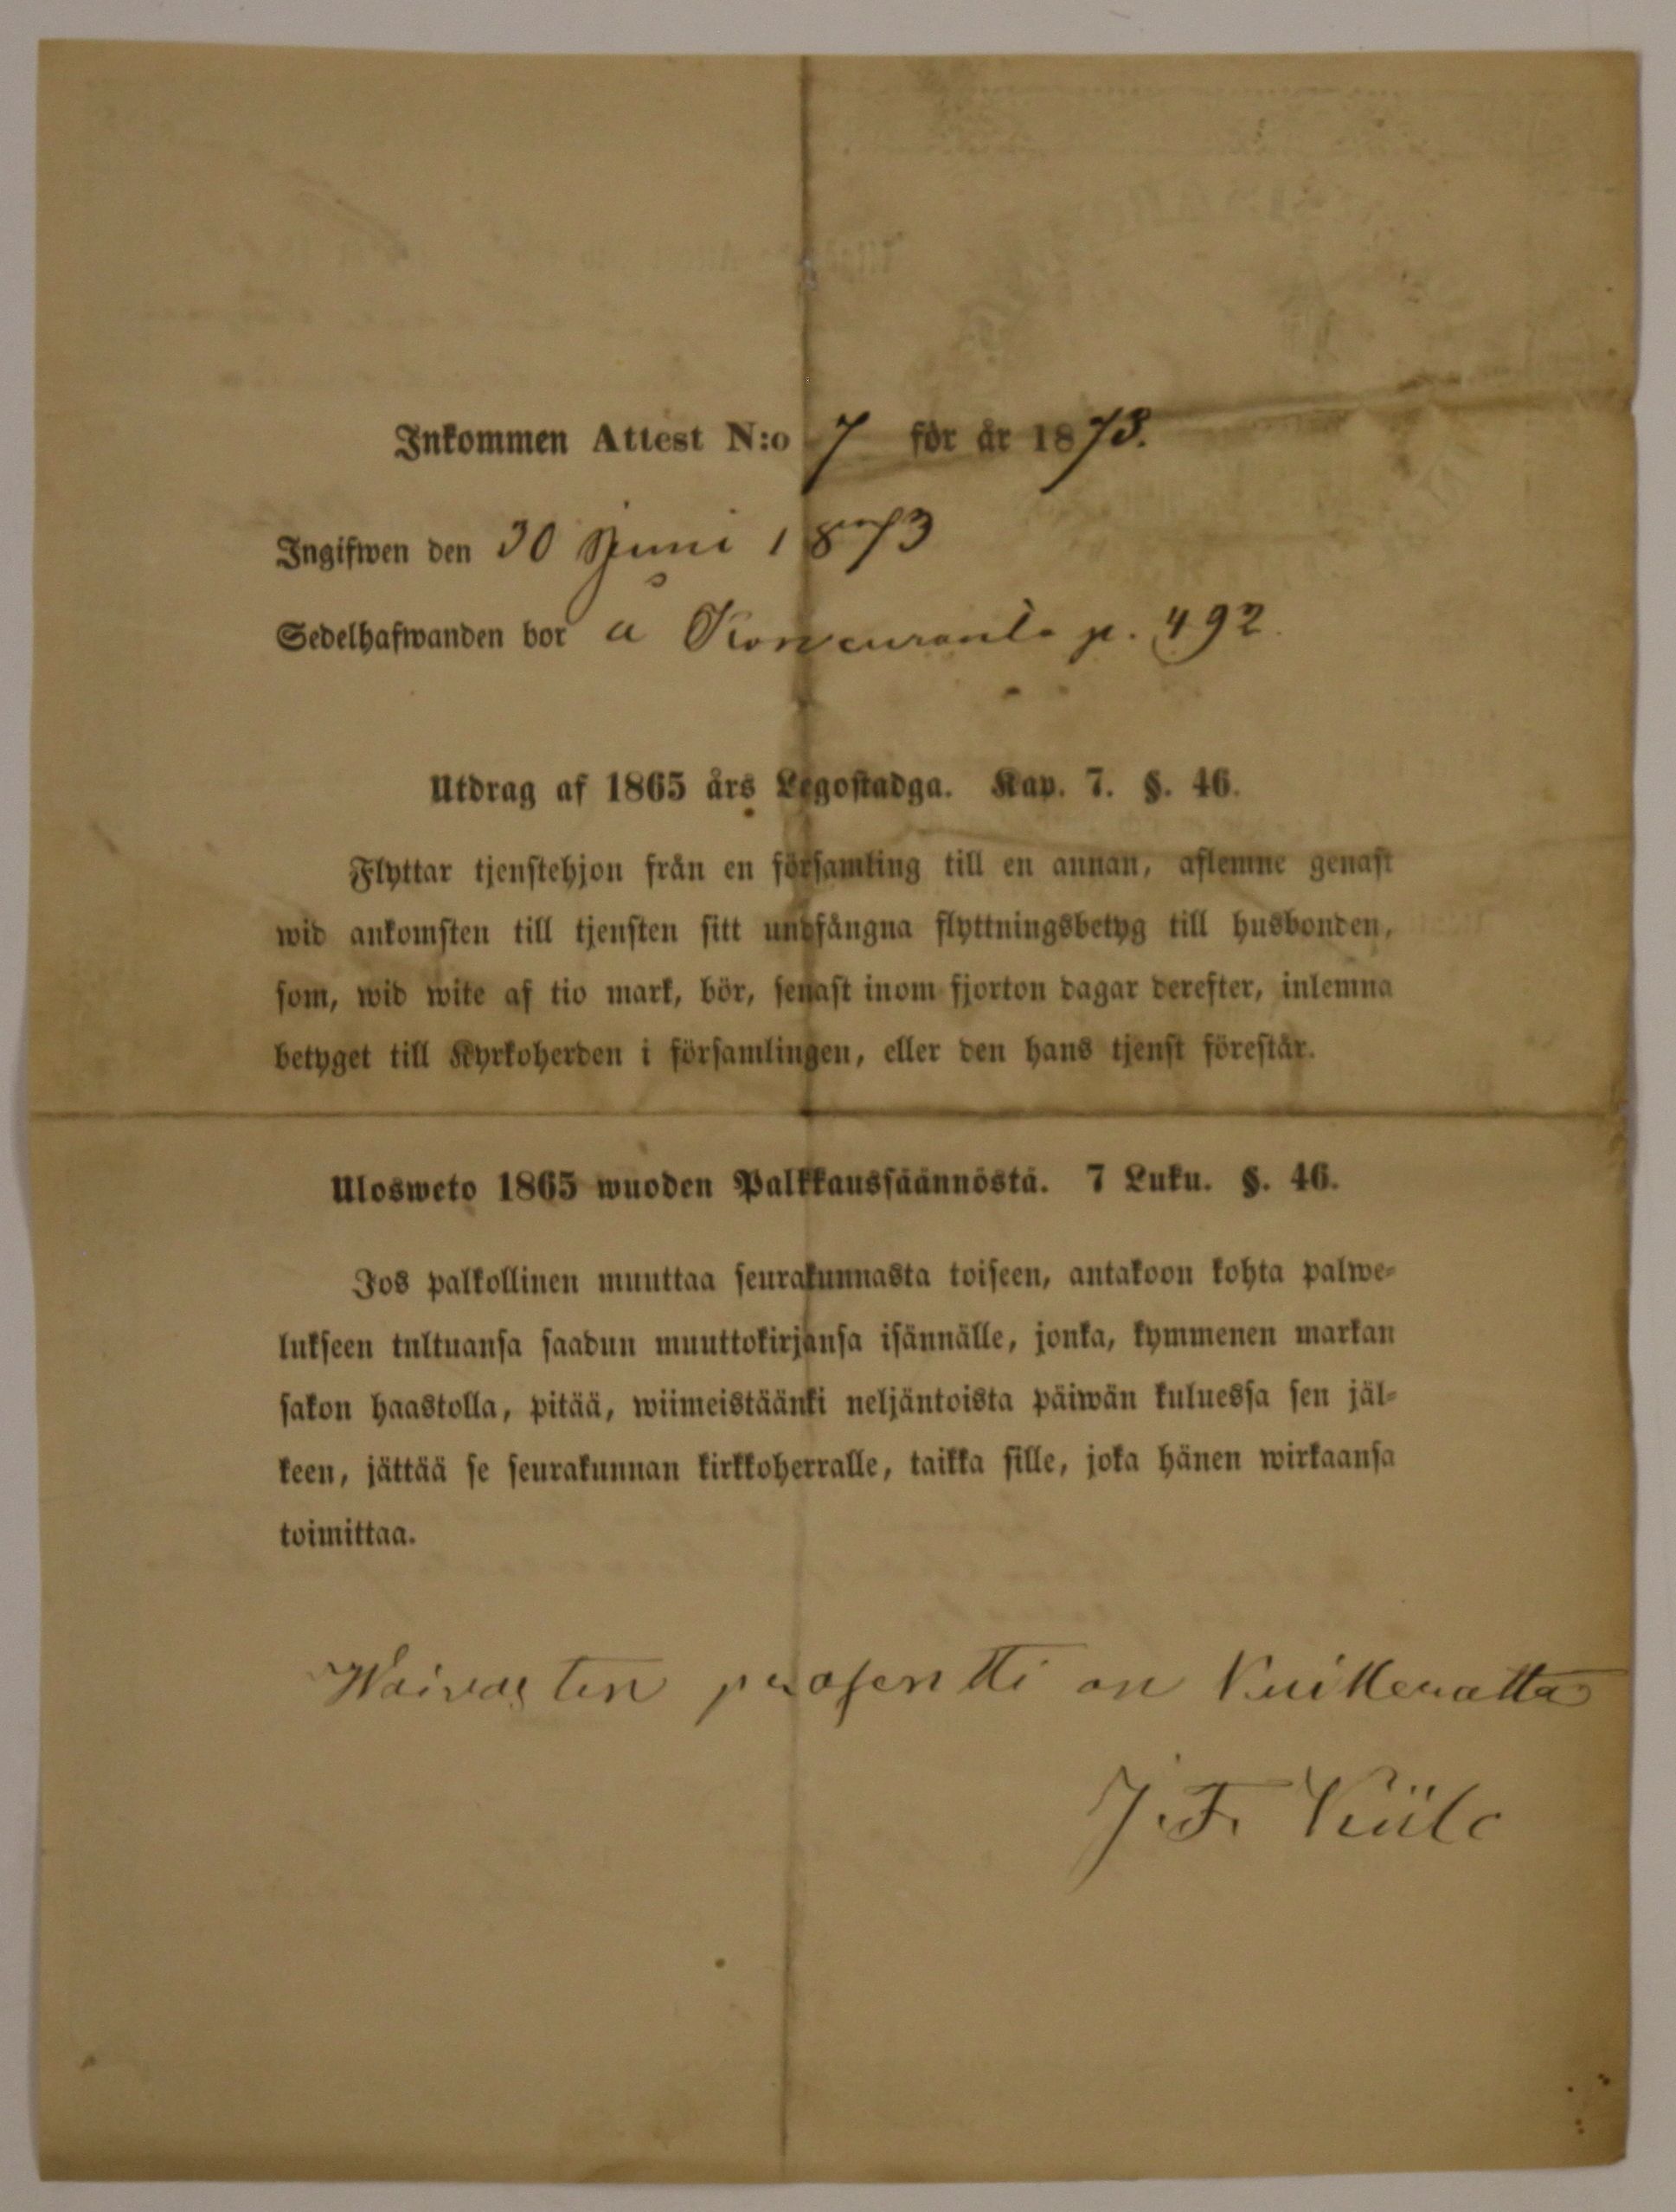 Inkommen Attest N:o 7 för år 1873.
Ingifwen den 30 Juni 1873
Sedelhafwanden bor å p. 492.
Utdrag af 1865 års Legostadga. Kap. 7. §. 46.
Flyttar tjenstehjon från en församling till en annan, aflemne genast
wid ankomsten till tjensten sitt undfångna flyttningsbetyg till husbonden,
som, wid wite af tio mark, bör, senast inom fjorton dagar derefter, inlemna
betyget till Kyrkoherden i församlingen, eller den hans tjenst förestår.
Ulosweto 1865 wuoden Palkkaussäännöstä. 7 Luku. §. 46.
Jos palkollinen muuttaa seurakunnasta toiseen, antakoon kohta palwe-
lukseen tultuansa saadun muuttokirjansa isännälle, jonka, kymmenen markan
sakon haastolla, pitää, wiimeistäänki neljäntoista päiwän kuluessa sen jäl-
keen, jättää se seurakunnan kirkkoherralle, taikka sille, joka hänen wirkaansa
toimittaa.
Waivasten prosentti on Kuitteratta
J. F.